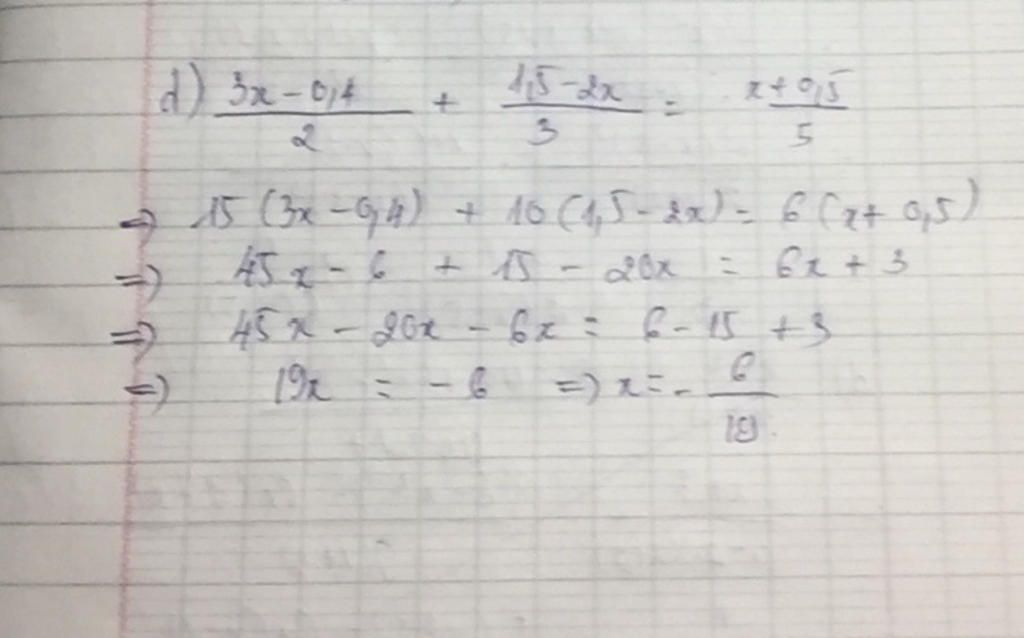 d) \frac{3x-0,4}{2} + \frac{1,5-2x}{3} = \frac{x+0,5}{5}
=> 15 (3x-0,4) + 10 (1,5-2x) = 6 (x+0,5)
=> 45x - 6 + 15 - 20x = 6x + 3
=> 45x - 20x - 6x = 6 - 15 + 3
=> 19x = -6 => x = - \frac{6}{19}